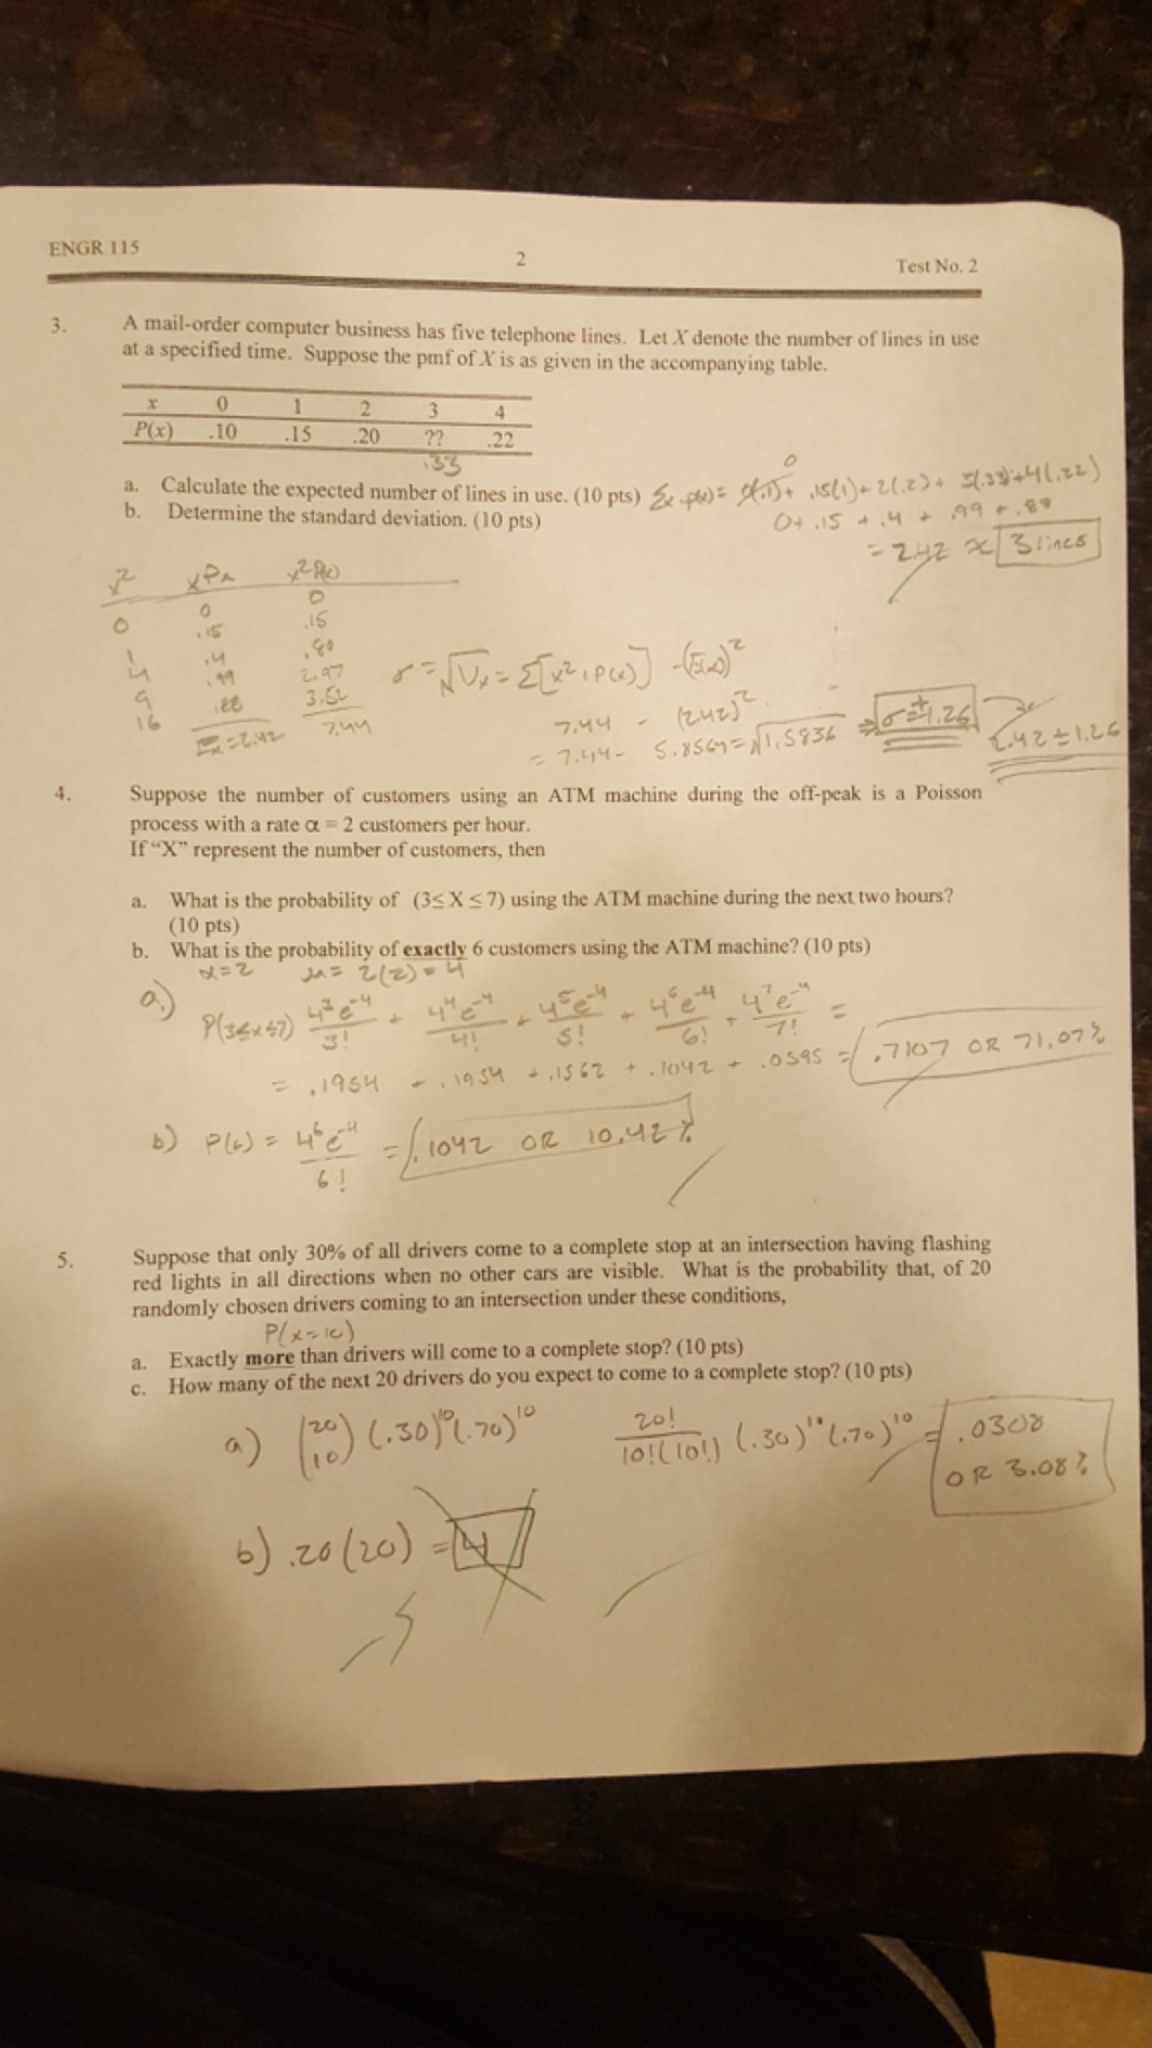 ENGR 115
2
Test No. 2
3. A mail-order computer business has five telephone lines. Let X denote the number of lines in use
at a specified time. Suppose the pmf of X is as given in the accompanying table.
x 0 1 2 3 4
P(x) .10 .15 .20 ?? .22
.33
a. Calculate the expected number of lines in use. (10 pts) Σx·p(x) = 0(.1) + .15(1) + 2(.2) + 3(.33) + 4(.22)
0
b. Determine the standard deviation. (10 pts)
0 + .15 + .4 + .99 + .88
= 2.42 ≈ 3 lines
x² xPx x²P(x)
0 0 0
1 .15 .15
4 .4 .80
9 .99 2.97
16 .88 3.52
Ex = 2.42 7.44
σ = √Vx = Σ[x² · P(x)] - (E(x))²
7.44 - (2.42)²
= 7.44 - 5.8564 = √1.5836 ⇒ σ = ±1.26
2.42 ± 1.26
4. Suppose the number of customers using an ATM machine during the off-peak is a Poisson
process with a rate α = 2 customers per hour.
If "X" represent the number of customers, then
a. What is the probability of (3≤ X ≤ 7) using the ATM machine during the next two hours?
(10 pts)
b. What is the probability of exactly 6 customers using the ATM machine? (10 pts)
α = 2 μ = 2(2) = 4
a.) P(3≤x≤7) 4³e⁻⁴/3! + 4⁴e⁻⁴/4! + 4⁵e⁻⁴/5! + 4⁶e⁻⁴/6! + 4⁷e⁻⁴/7! =
= .1954 + .1954 + .1562 + .1042 + .0595 = .7107 OR 71.07%
b) P(6) = 4⁶e⁻⁴/6! = .1042 OR 10.42%
5. Suppose that only 30% of all drivers come to a complete stop at an intersection having flashing
red lights in all directions when no other cars are visible. What is the probability that, of 20
randomly chosen drivers coming to an intersection under these conditions,
P(x=10)
a. Exactly more than drivers will come to a complete stop? (10 pts)
c. How many of the next 20 drivers do you expect to come to a complete stop? (10 pts)
a) (20 10) (.30)¹⁰(.70)¹⁰ 20!/10!(10!) (.30)¹⁰(.70)¹⁰ = .0308
OR 3.08%
b) .20(20) = 4
-5